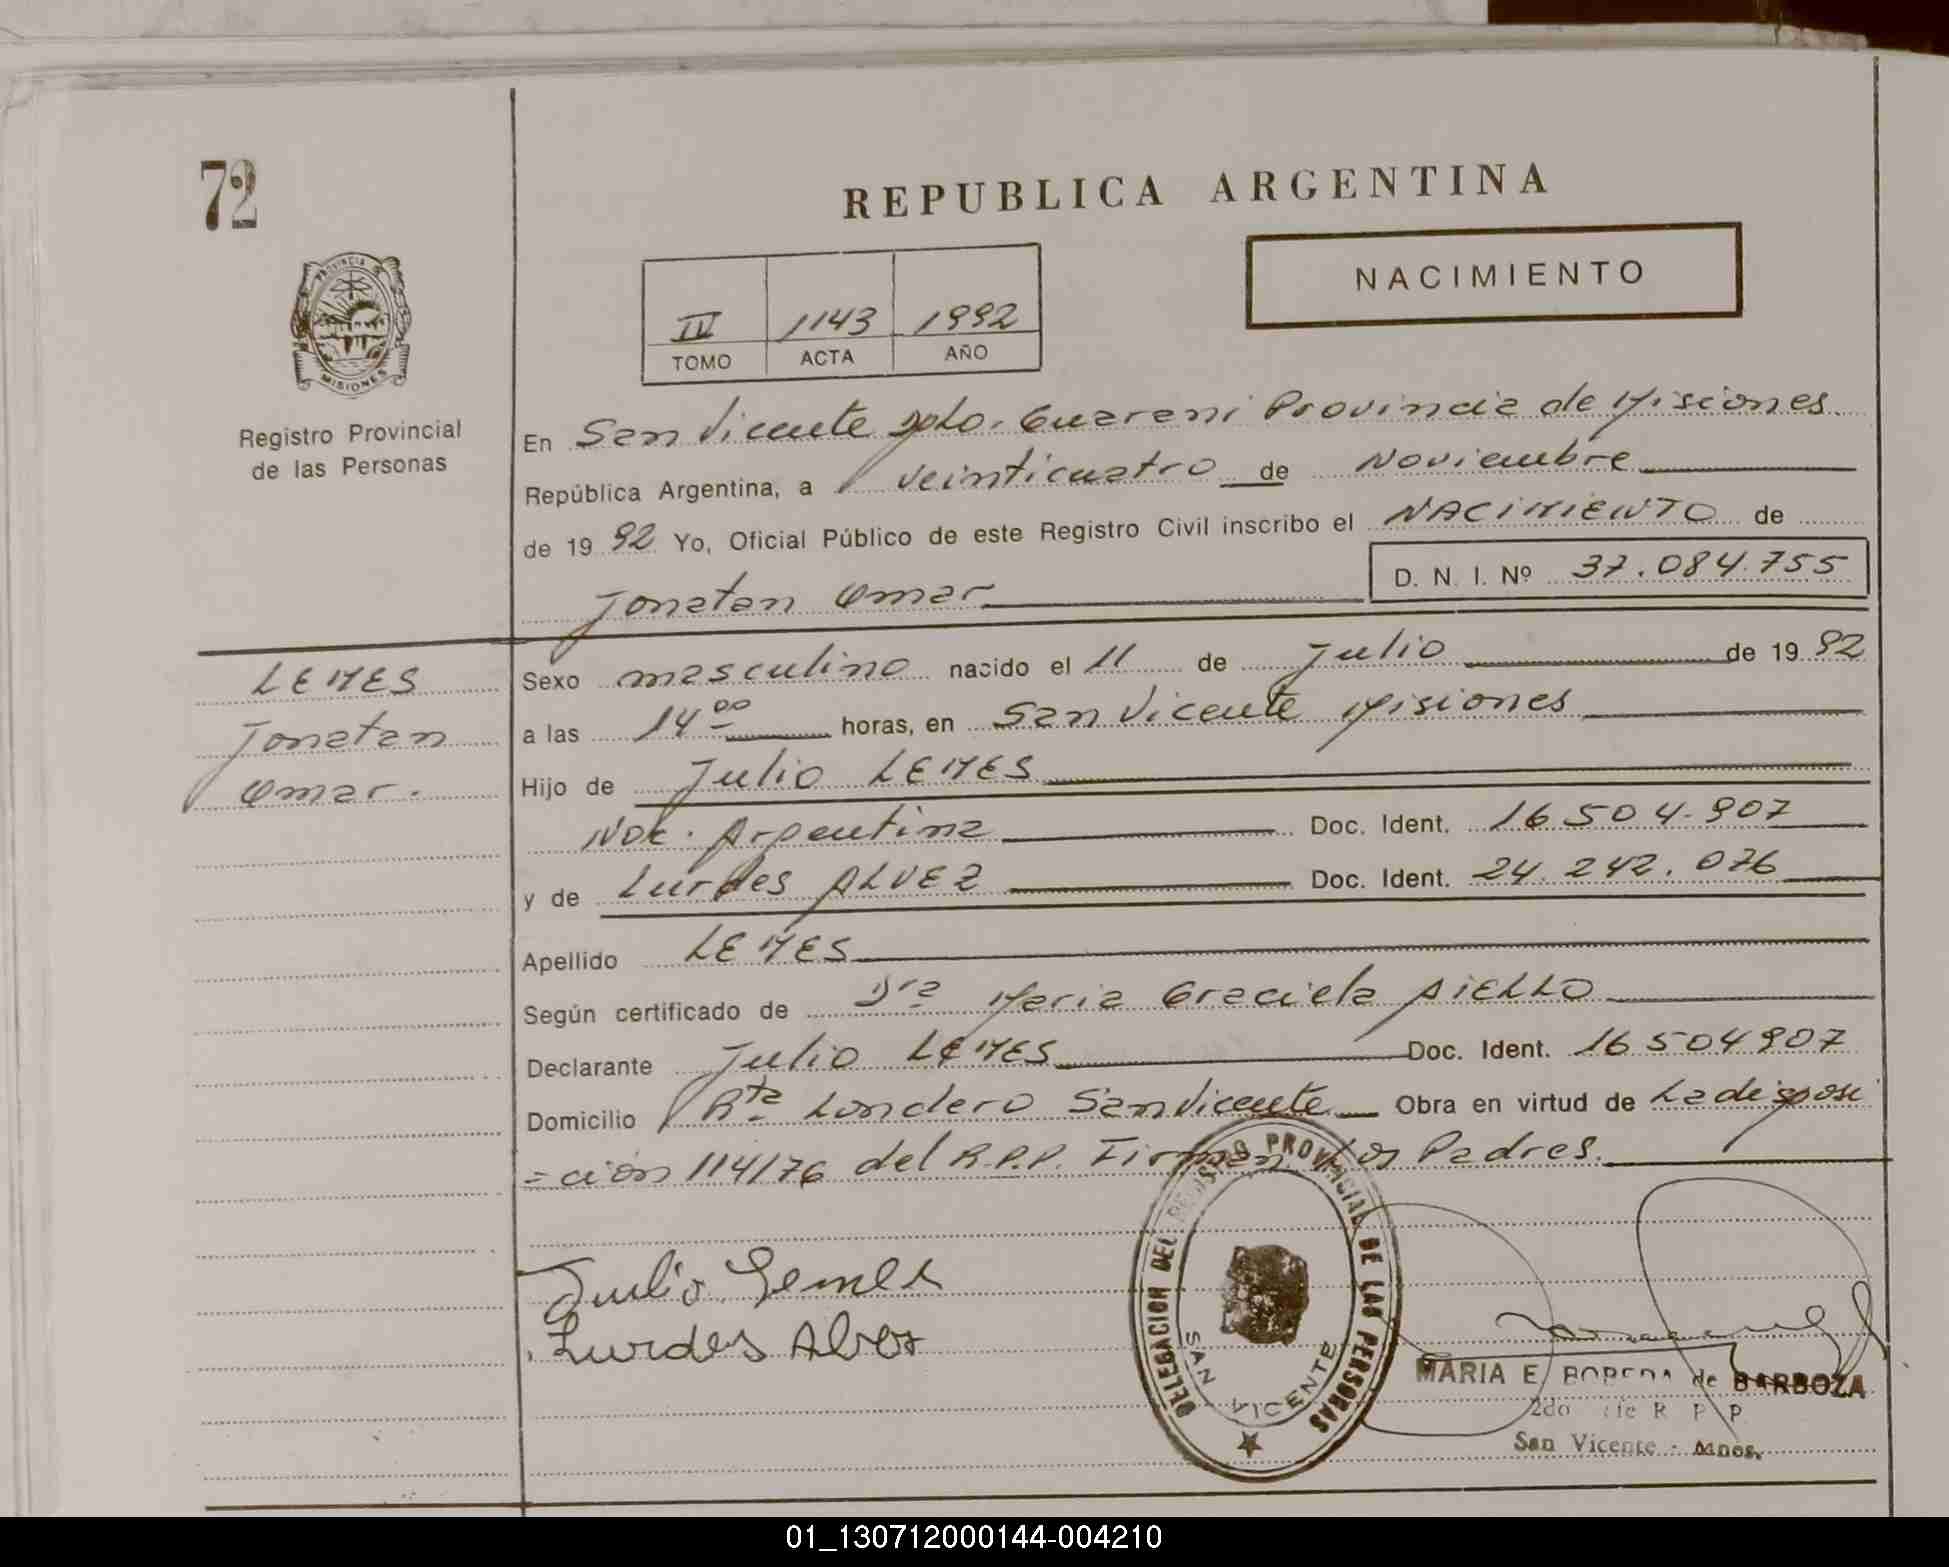 72
REPUBLICA ARGENTINA
NACIMIENTO
IV 1143 1992
TOMO ACTA AÑO
PROVINCIA DE
MISIONES
Registro Provincial
de las Personas
En San Vicente Dpto. Guarani Provincia de Misiones
República Argentina, a veinticuatro de Noviembre
de 19 92 Yo, Oficial Público de este Registro Civil inscribo el NACIMIENTO de
D. N. I. Nº 37.084.755
Jonatan Omar
LEMES
Jonatan
Omar.
Sexo masculino nacido el 11 de Julio de 19 92
a las 14 00 horas, en San Vicente Misiones
Hijo de Julio LEMES
Nac. Argentina Doc. Ident. 16.504.907
y de Lurdes ALVEZ Doc. Ident. 24.242.076
Apellido LEMES
Según certificado de Dra Maria Graciela AIELLO
Declarante Julio LEMES Doc. Ident. 16504907
Domicilio Rta Londero San Vicente Obra en virtud de La disposi
=ción 114/76 del R.P.P. Firman Los Padres.
Julio Lemes
Lurdes Alvez
DELEGACION DEL REGISTRO PROVINCIAL DE LAS PERSONAS
SAN VICENTE
MARIA E. de BARBOZA
2do R P P
San Vicente - Mnes.
01_130712000144-004210